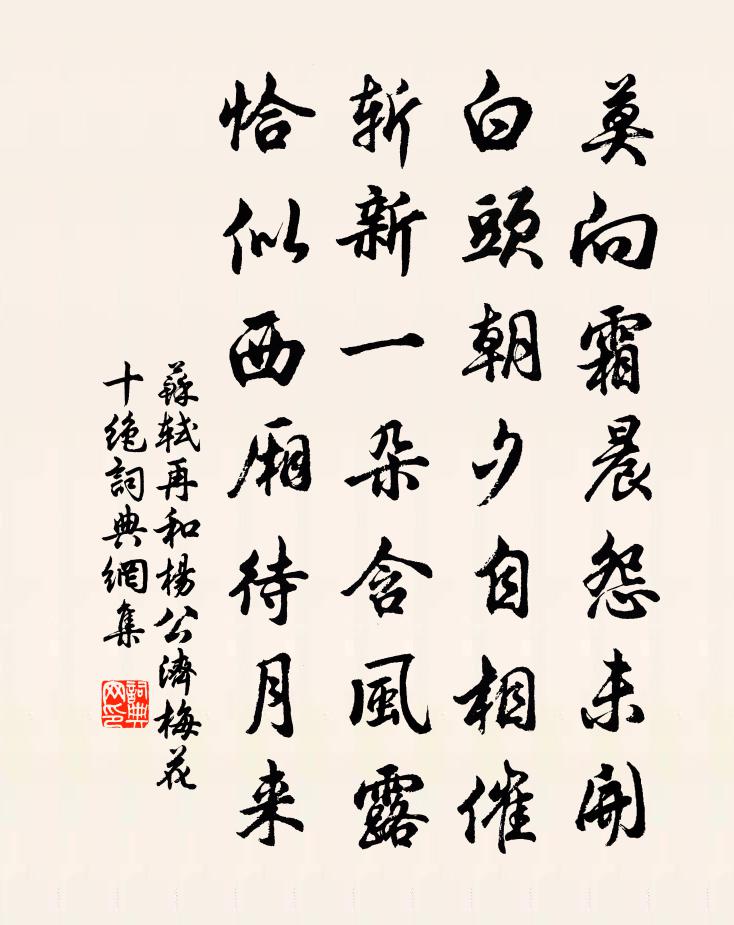 莫向霜晨怨未開
白頭朝夕自相催
斬新一朵含風露
恰似西厢待月来
蘇軾再和楊公濟梅花
十絶詞典網集
詞典网印